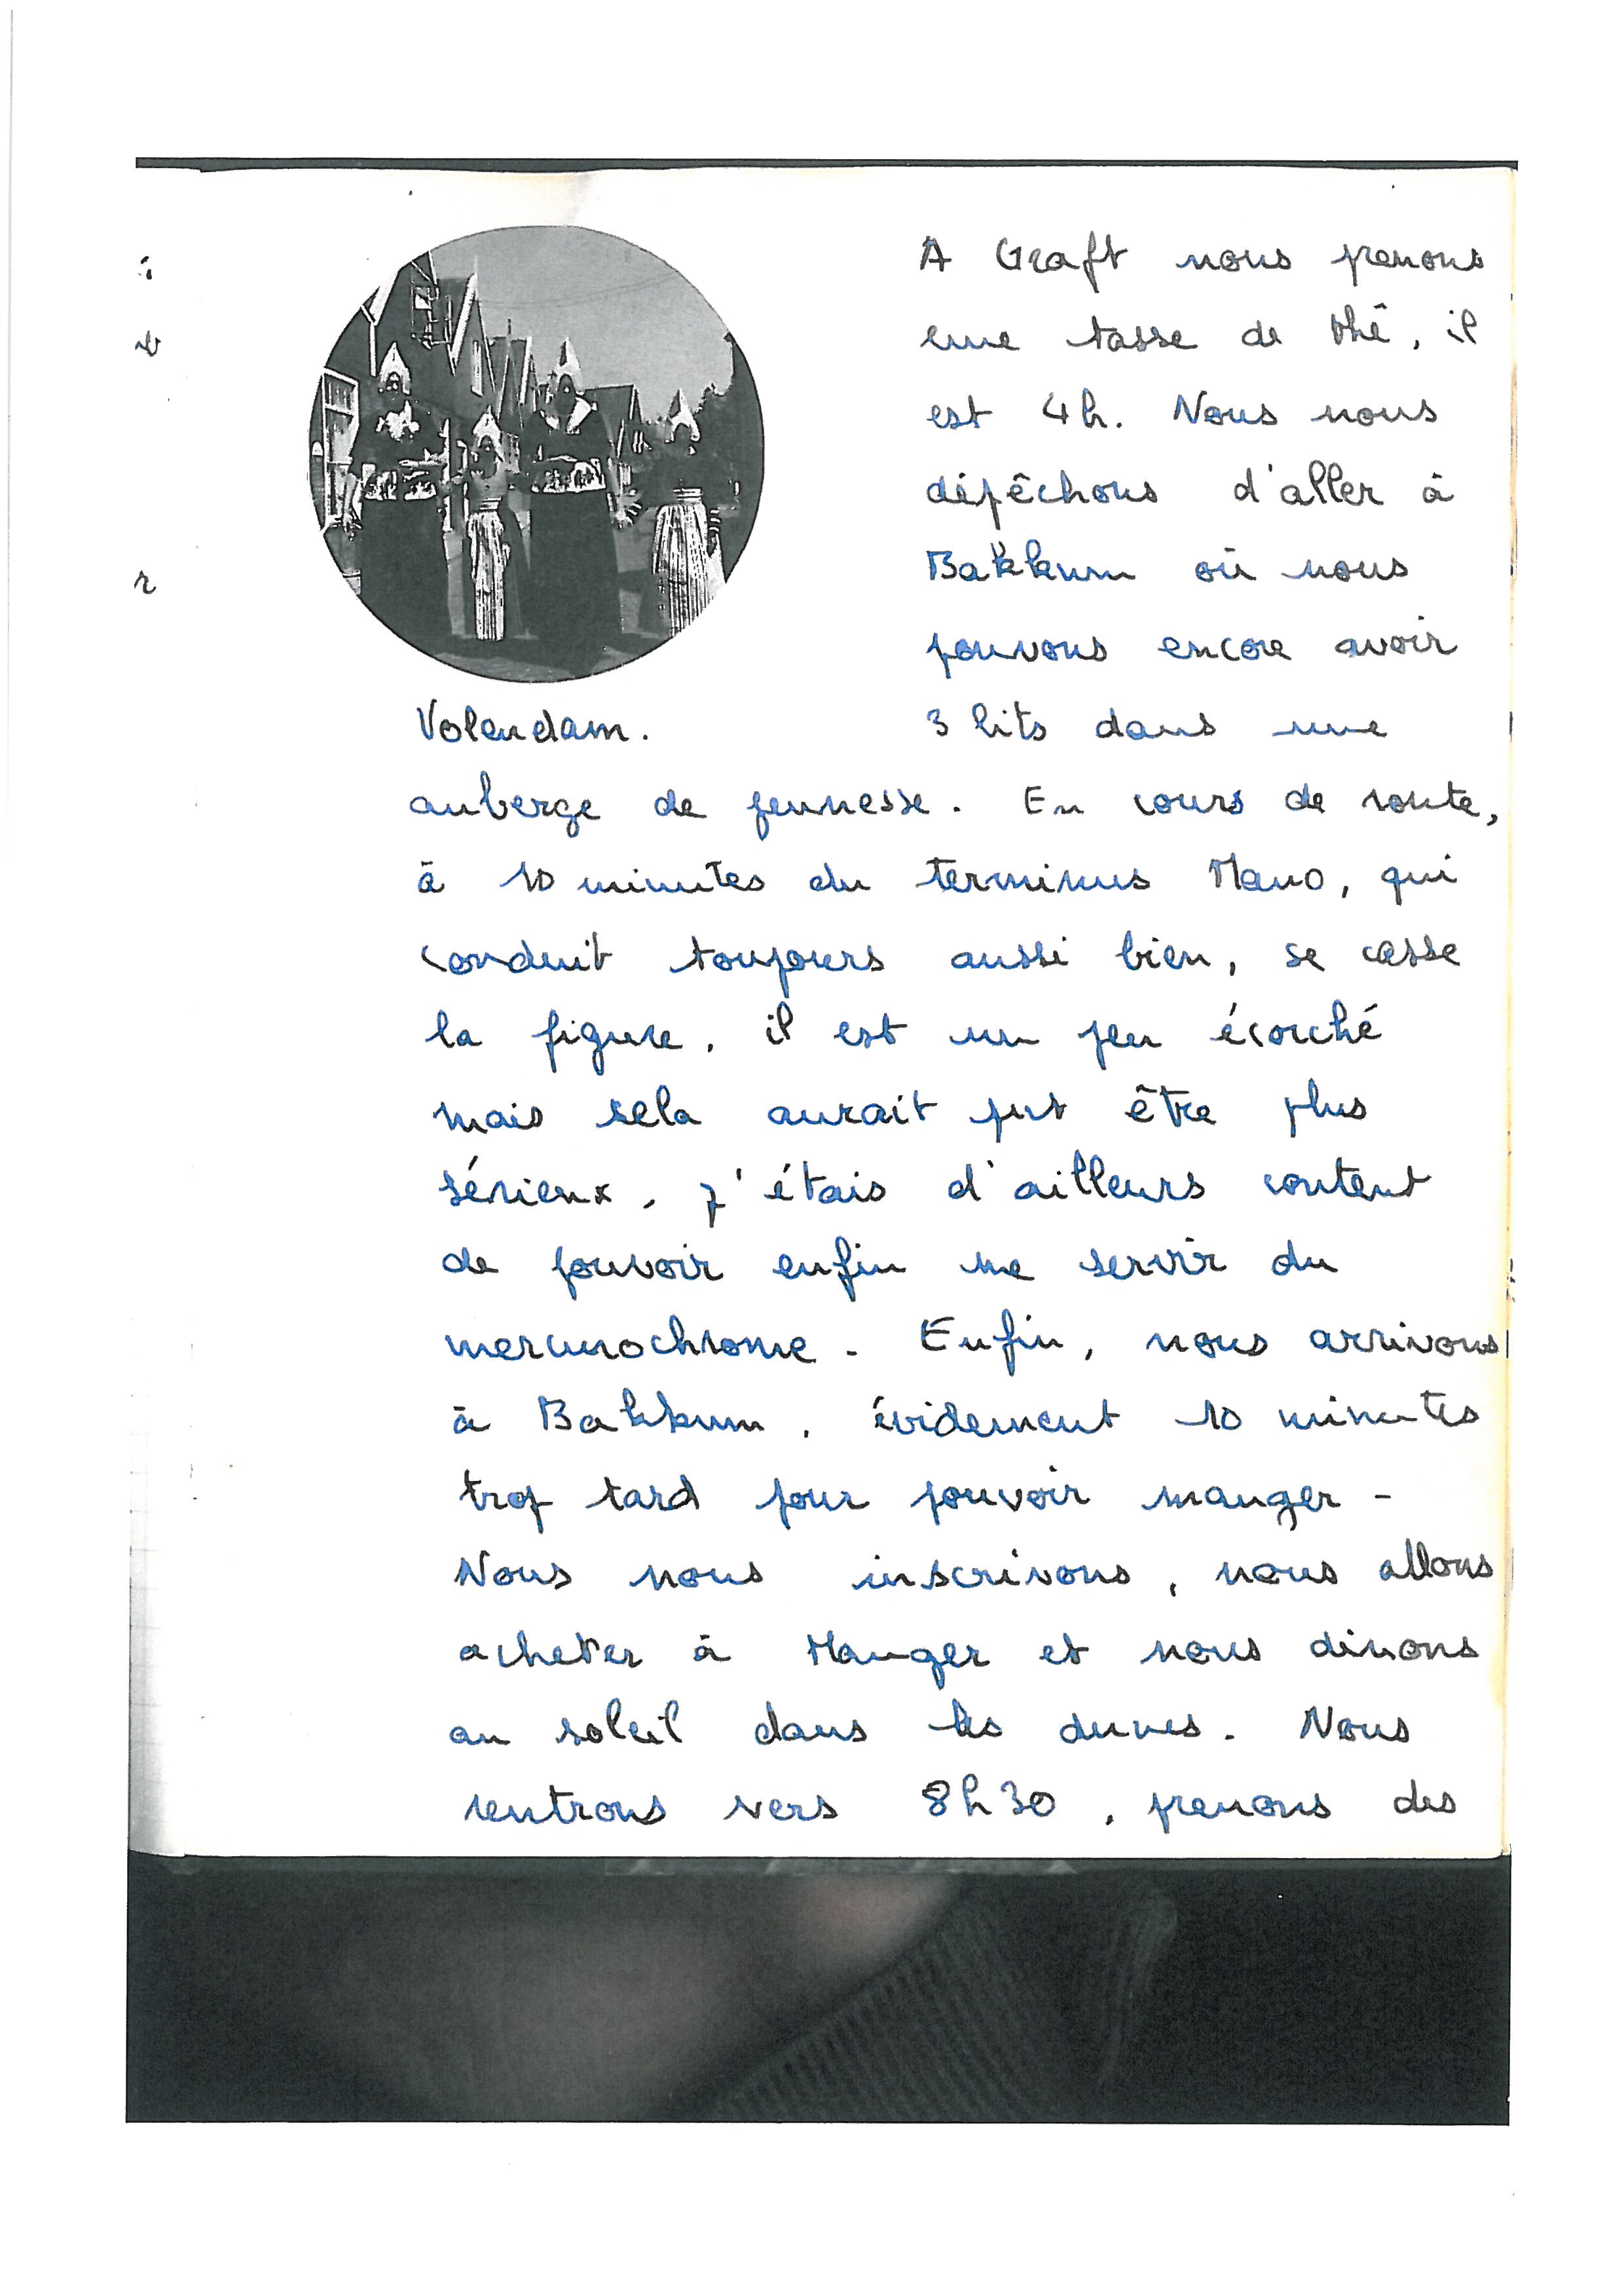 A Graft nous prenons
une tasse de thé, il
est 4h. Nous nous
dépêchons d'aller à
Bakkum où nous
pouvons encore avoir
Volendam.
3 lits dans une
auberge de jeunesse. En cours de route,
à 10 minutes du terminus Mano, qui
conduit toujours aussi bien, se casse
la figure, il est un peu écorché
mais sela aurait put être plus
sérieux, j'étais d'ailleurs content
de pouvoir enfin me servir du
mercurochrome. Enfin, nous arrivons
à Bakkum, évidement 10 minutes
trop tard pour pouvoir manger -
Nous nous inscrivons, nous allons
acheter à Manger et nous dinons
au soleil dans les dunes. Nous
rentrons vers 8h30, prenons des